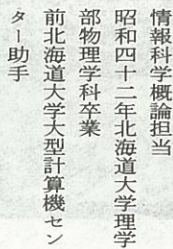 情報科学概論担当
昭和四十二年北海道大学理学
部物理学科卒業
前北海道大学大型計算機セン
ター助手